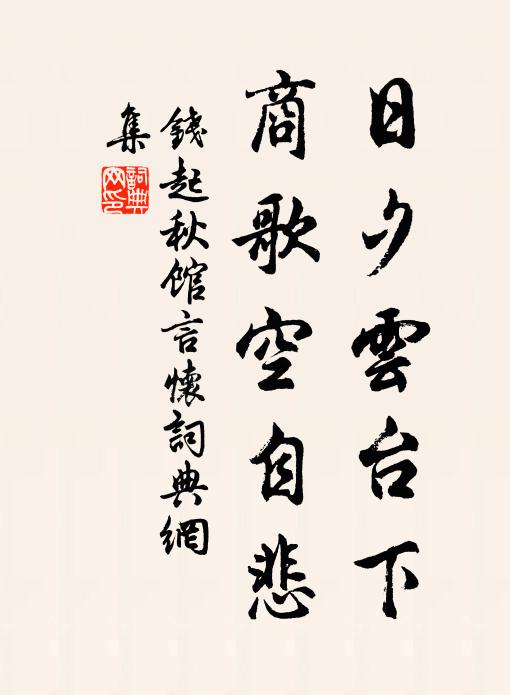 日夕雲台下
商歌空自悲
錢起秋館言懷詞典網
集
詞典
网印